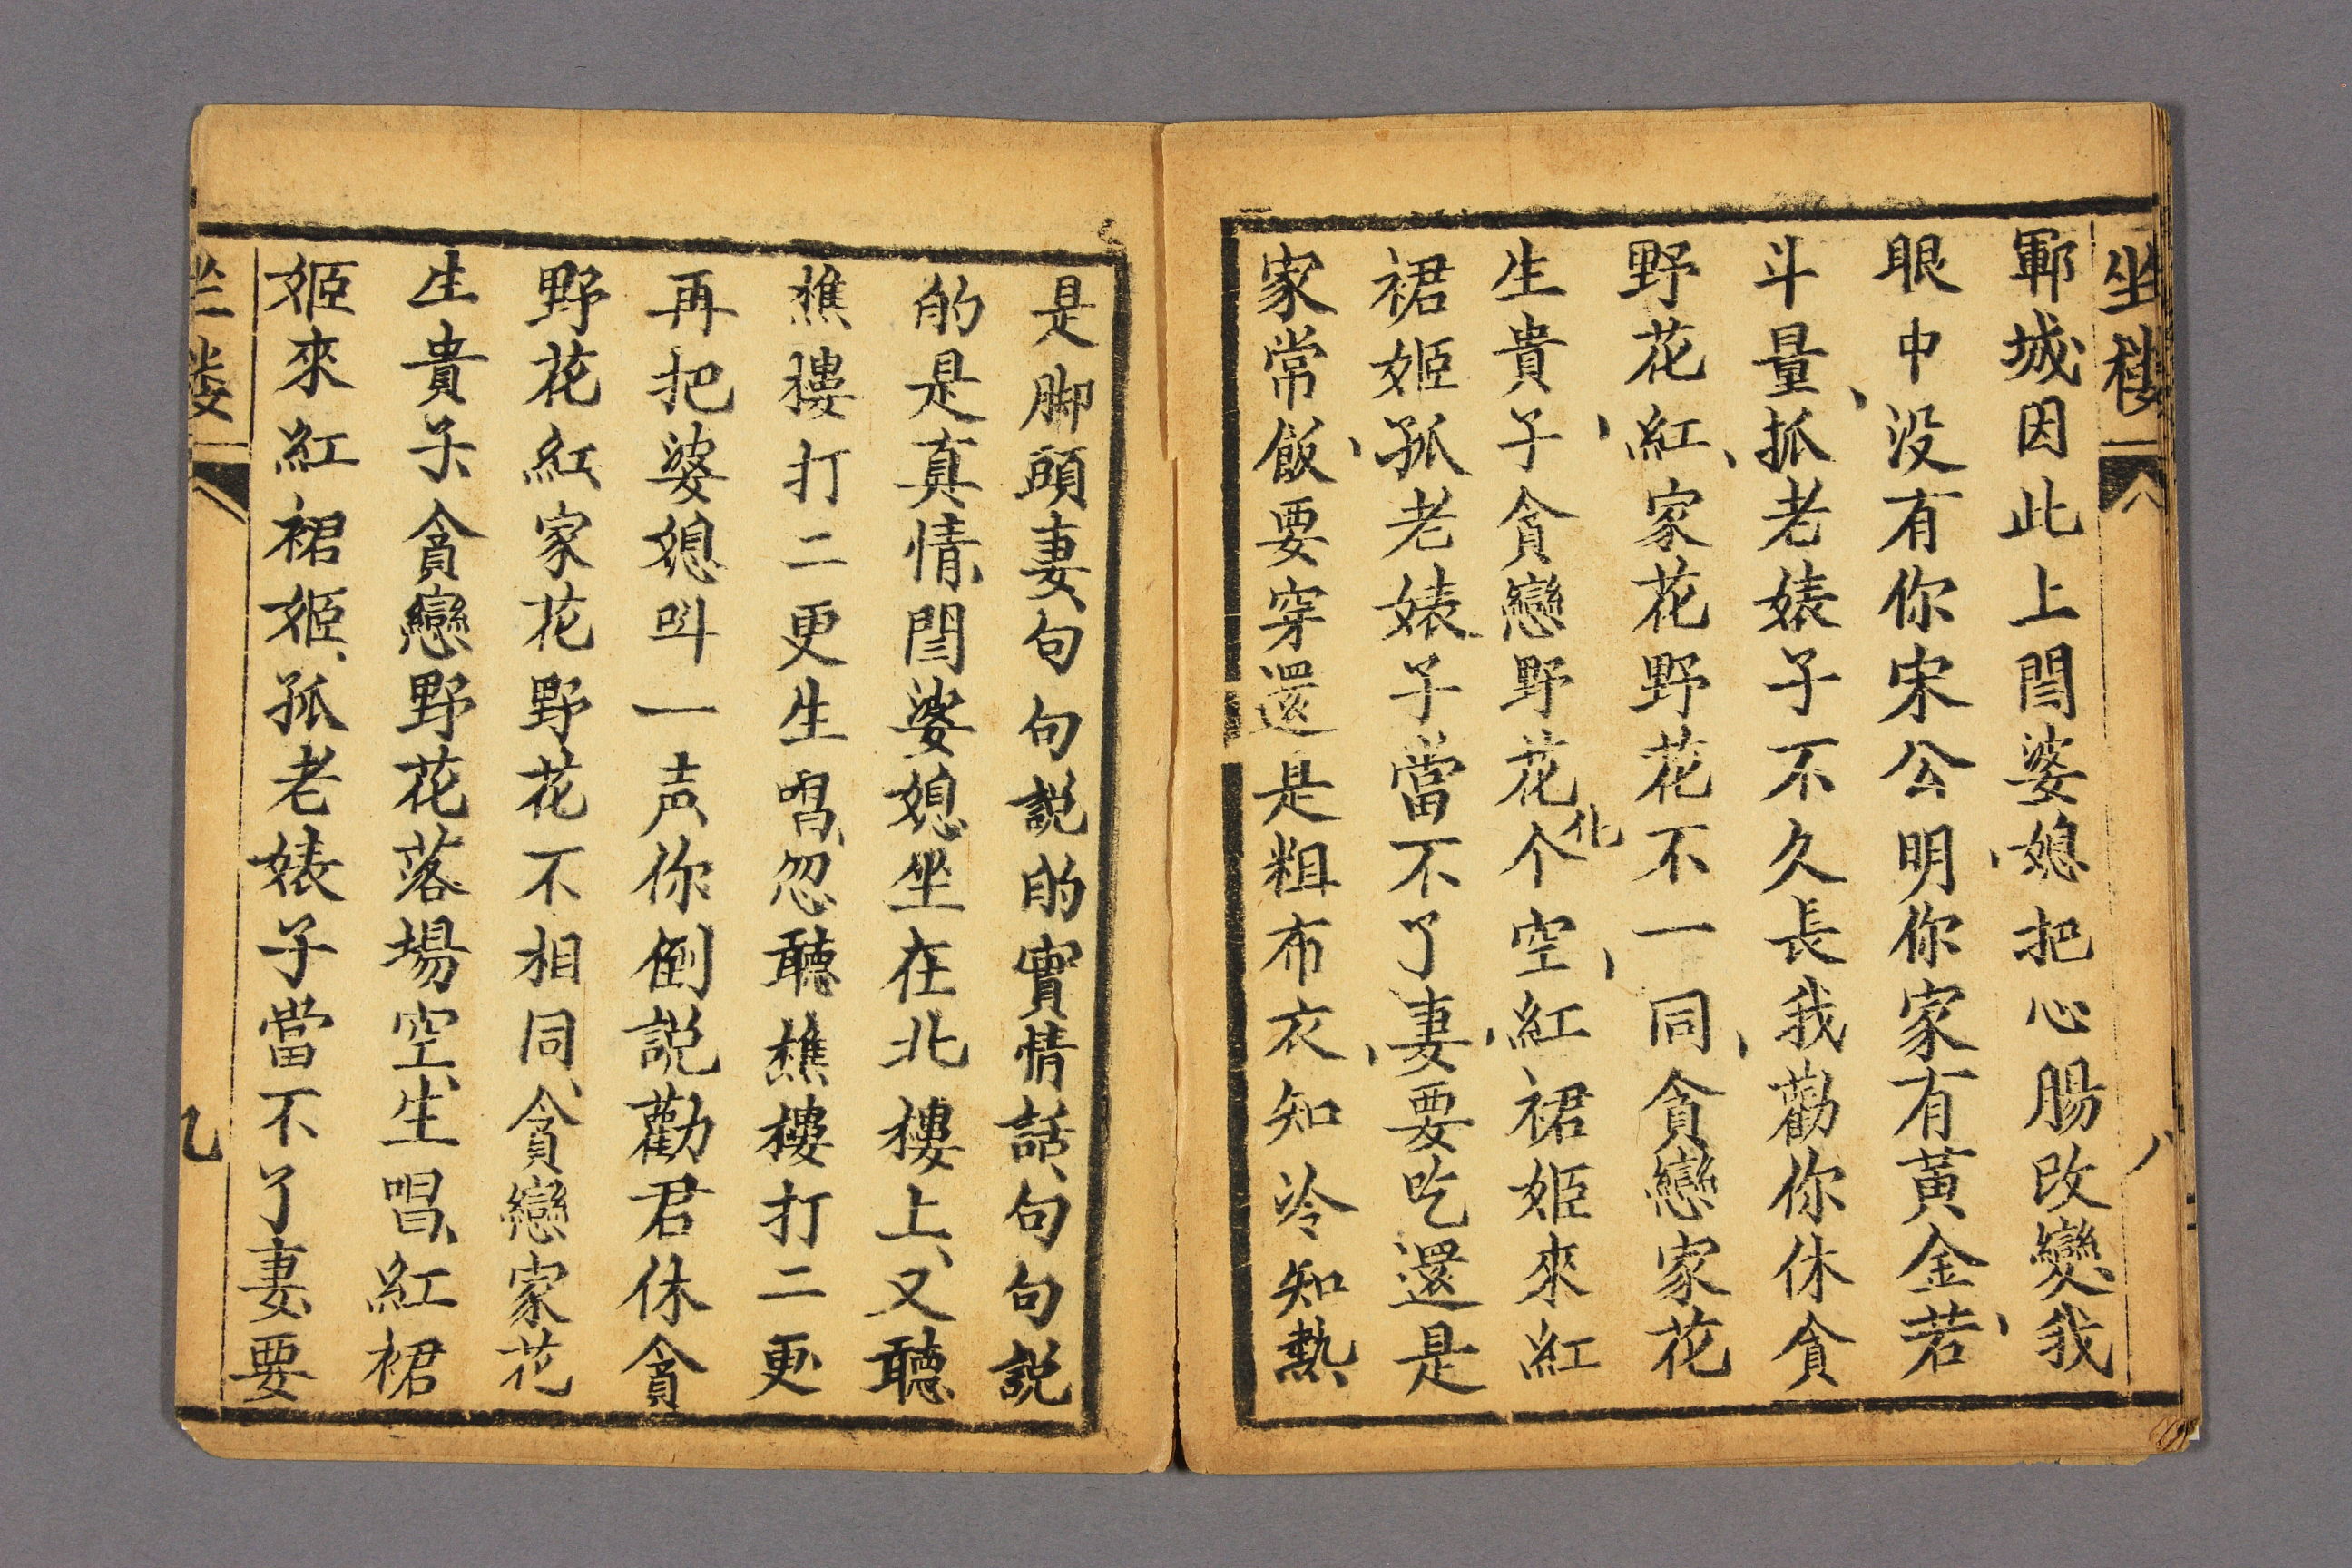 坐楼 八
鄆城因此上閆婆媳把心腸改變我
眼中没有你宋公明你家有黃金若
斗量孤老婊子不久長我勸你休貪
野花紅家花野花不一同貪戀家花
生貴子貪戀野花化个空紅裙姬來紅
裙姬孤老婊子當不了妻要吃還是
家常飯要穿還是粗布衣知冷知熱
是脚頭妻句句説的實情話句句説
的是真情閆婆媳坐在北樓上又聽
樵樓打二更生唱忽聽樵樓打二更
再把婆媳叫一声你倒説勸君休貪
野花紅家花野花不相同貪戀家花
生貴子貪戀野花落場空生唱紅裙
姬來紅裙姬孤老婊子當不了妻要
坐楼